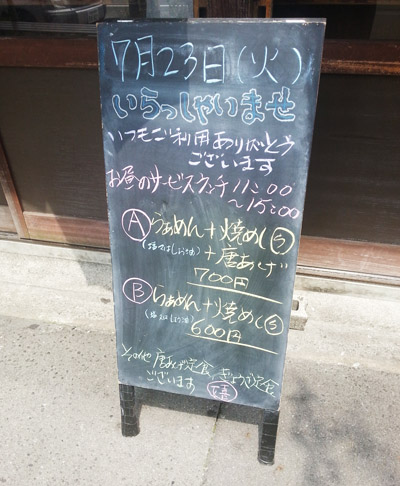 7月23日(火)
いらっしゃいませ
いつもご利用ありがとう
ございます
お昼のサービスランチ11:00
～15:00
Ⓐらぁめん+焼めしⓈ
(塩又はしょうゆ)+唐あげ
700円
Ⓑらぁめん+焼めしⓈ
(塩又はしょうゆ)
600円
その他唐あげ定食、ぎょうざ定食
ございます